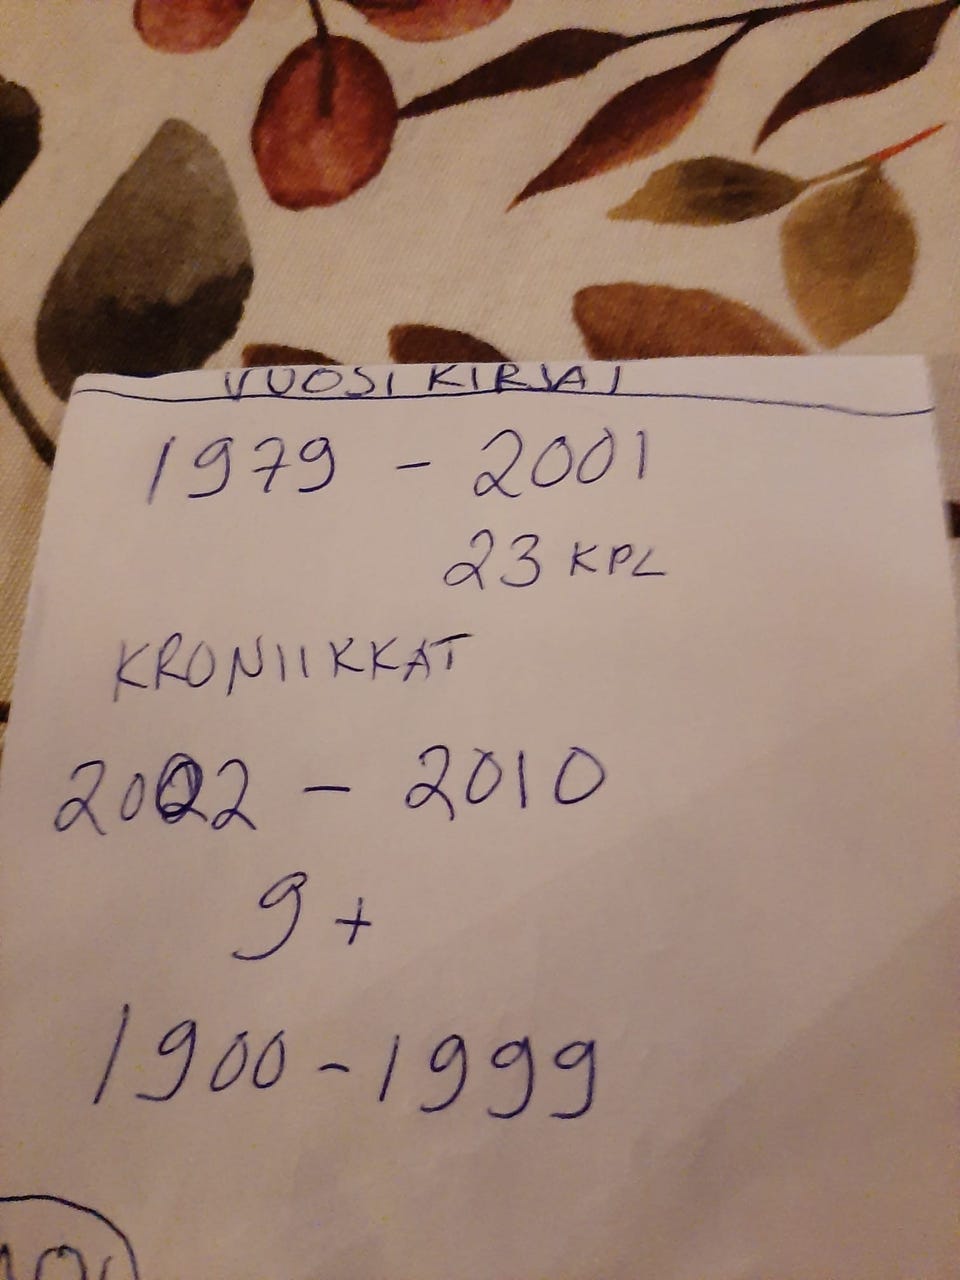 VUOSIKIRJAT
1979 - 2001
23 KPL
KRONIIKKAT
2002 - 2010
9 +
1900 - 1999